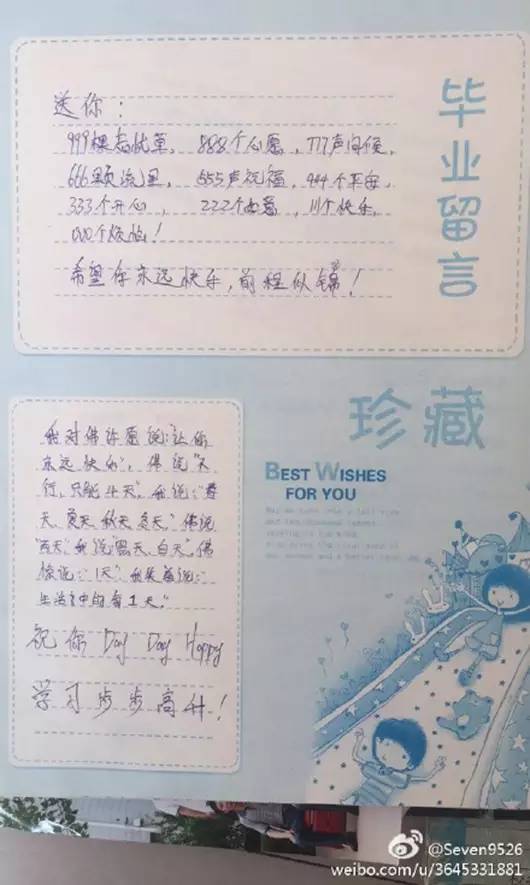 毕业留言
送你：
999棵幸运草，888个心愿，777声问候，
666颗流星，555声祝福，444个平安，
333个开心，222个如意，111个快乐，
000个烦恼！
希望你永远快乐，前程似锦！
珍藏
BEST WISHES
FOR YOU
我对佛许愿说：让你
永远快乐"，佛说"不
行，只能4天"，我说："春
天、夏天、秋天、冬天。"佛说
"两天"，我说"黑天、白天"，佛
惊说："1天"，我笑着说：
生活中的每1天。"
祝你 Day Day Happy
学习步步高升！
@Seven9526
weibo.com/u/3645331881